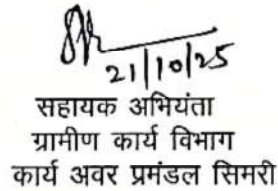 21/10/25
सहायक अभियंता
ग्रामीण कार्य विभाग
कार्य अवर प्रमंडल सिमरी